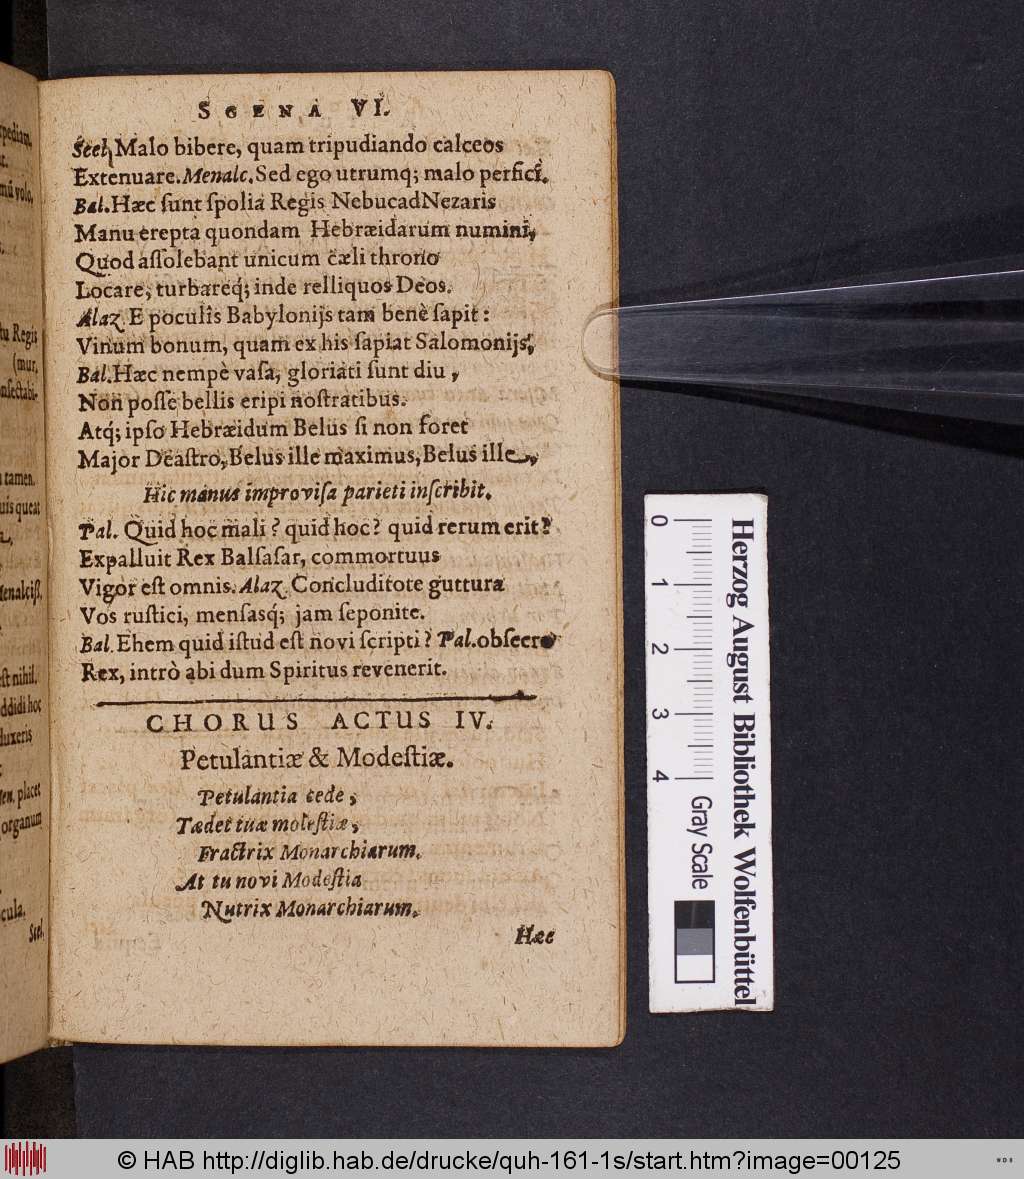 SCENA VI.
Stel. Malo bibere, quam tripudiando calceos
Extenuare. Menalc. Sed ego utrumq; malo perfici.
Bal. Hæc sunt spolia Regis NebucadNezaris
Manu erepta quondam Hebræidarum numini,
Quod assolebant unicum cæli throno
Locare, turbareq́; inde relliquos Deos.
Alaz. E poculis Babylonijs tam benè sapit:
Vinum bonum, quam ex his sapiat Salomonijs,
Bal. Hæc nempè vasa, gloriati sunt diu,
Non posse bellis eripi nostratibus.
Atq́; ipso Hebræidum Belus si non foret
Major Deastro, Belus ille maximus, Belus ille,
Hic manus improvisa parieti inscribit.
Pal. Quid hoc mali? quid hoc? quid rerum erit?
Expalluit Rex Balsasar, commortuus
Vigor est omnis. Alaz. Concluditote guttura
Vos rustici, mensasq́; jam seponite.
Bal. Ehem quid istud est novi scripti? Pal. obsecro
Rex, intrò abi dum Spiritus revenerit.
CHORUS ACTUS IV.
Petulantiæ & Modestiæ.
Petulantia cede,
Tædet tuæ molestiæ,
Fractrix Monarchiarum.
At tu novi Modestia
Nutrix Monarchiarum.
Hæc
pediam,
mũ volo,
tu Regis
(mur,
nsectabi-
tamen.
uis queat
Menalcis.
st nihil.
ddidi hoc
duxeris
Men. placet
organum
cula.
Stel.
0 1 2 3 4
Gray Scale
Herzog August Bibliothek Wolfenbüttel
© HAB http://diglib.hab.de/drucke/quh-161-1s/start.htm?image=00125